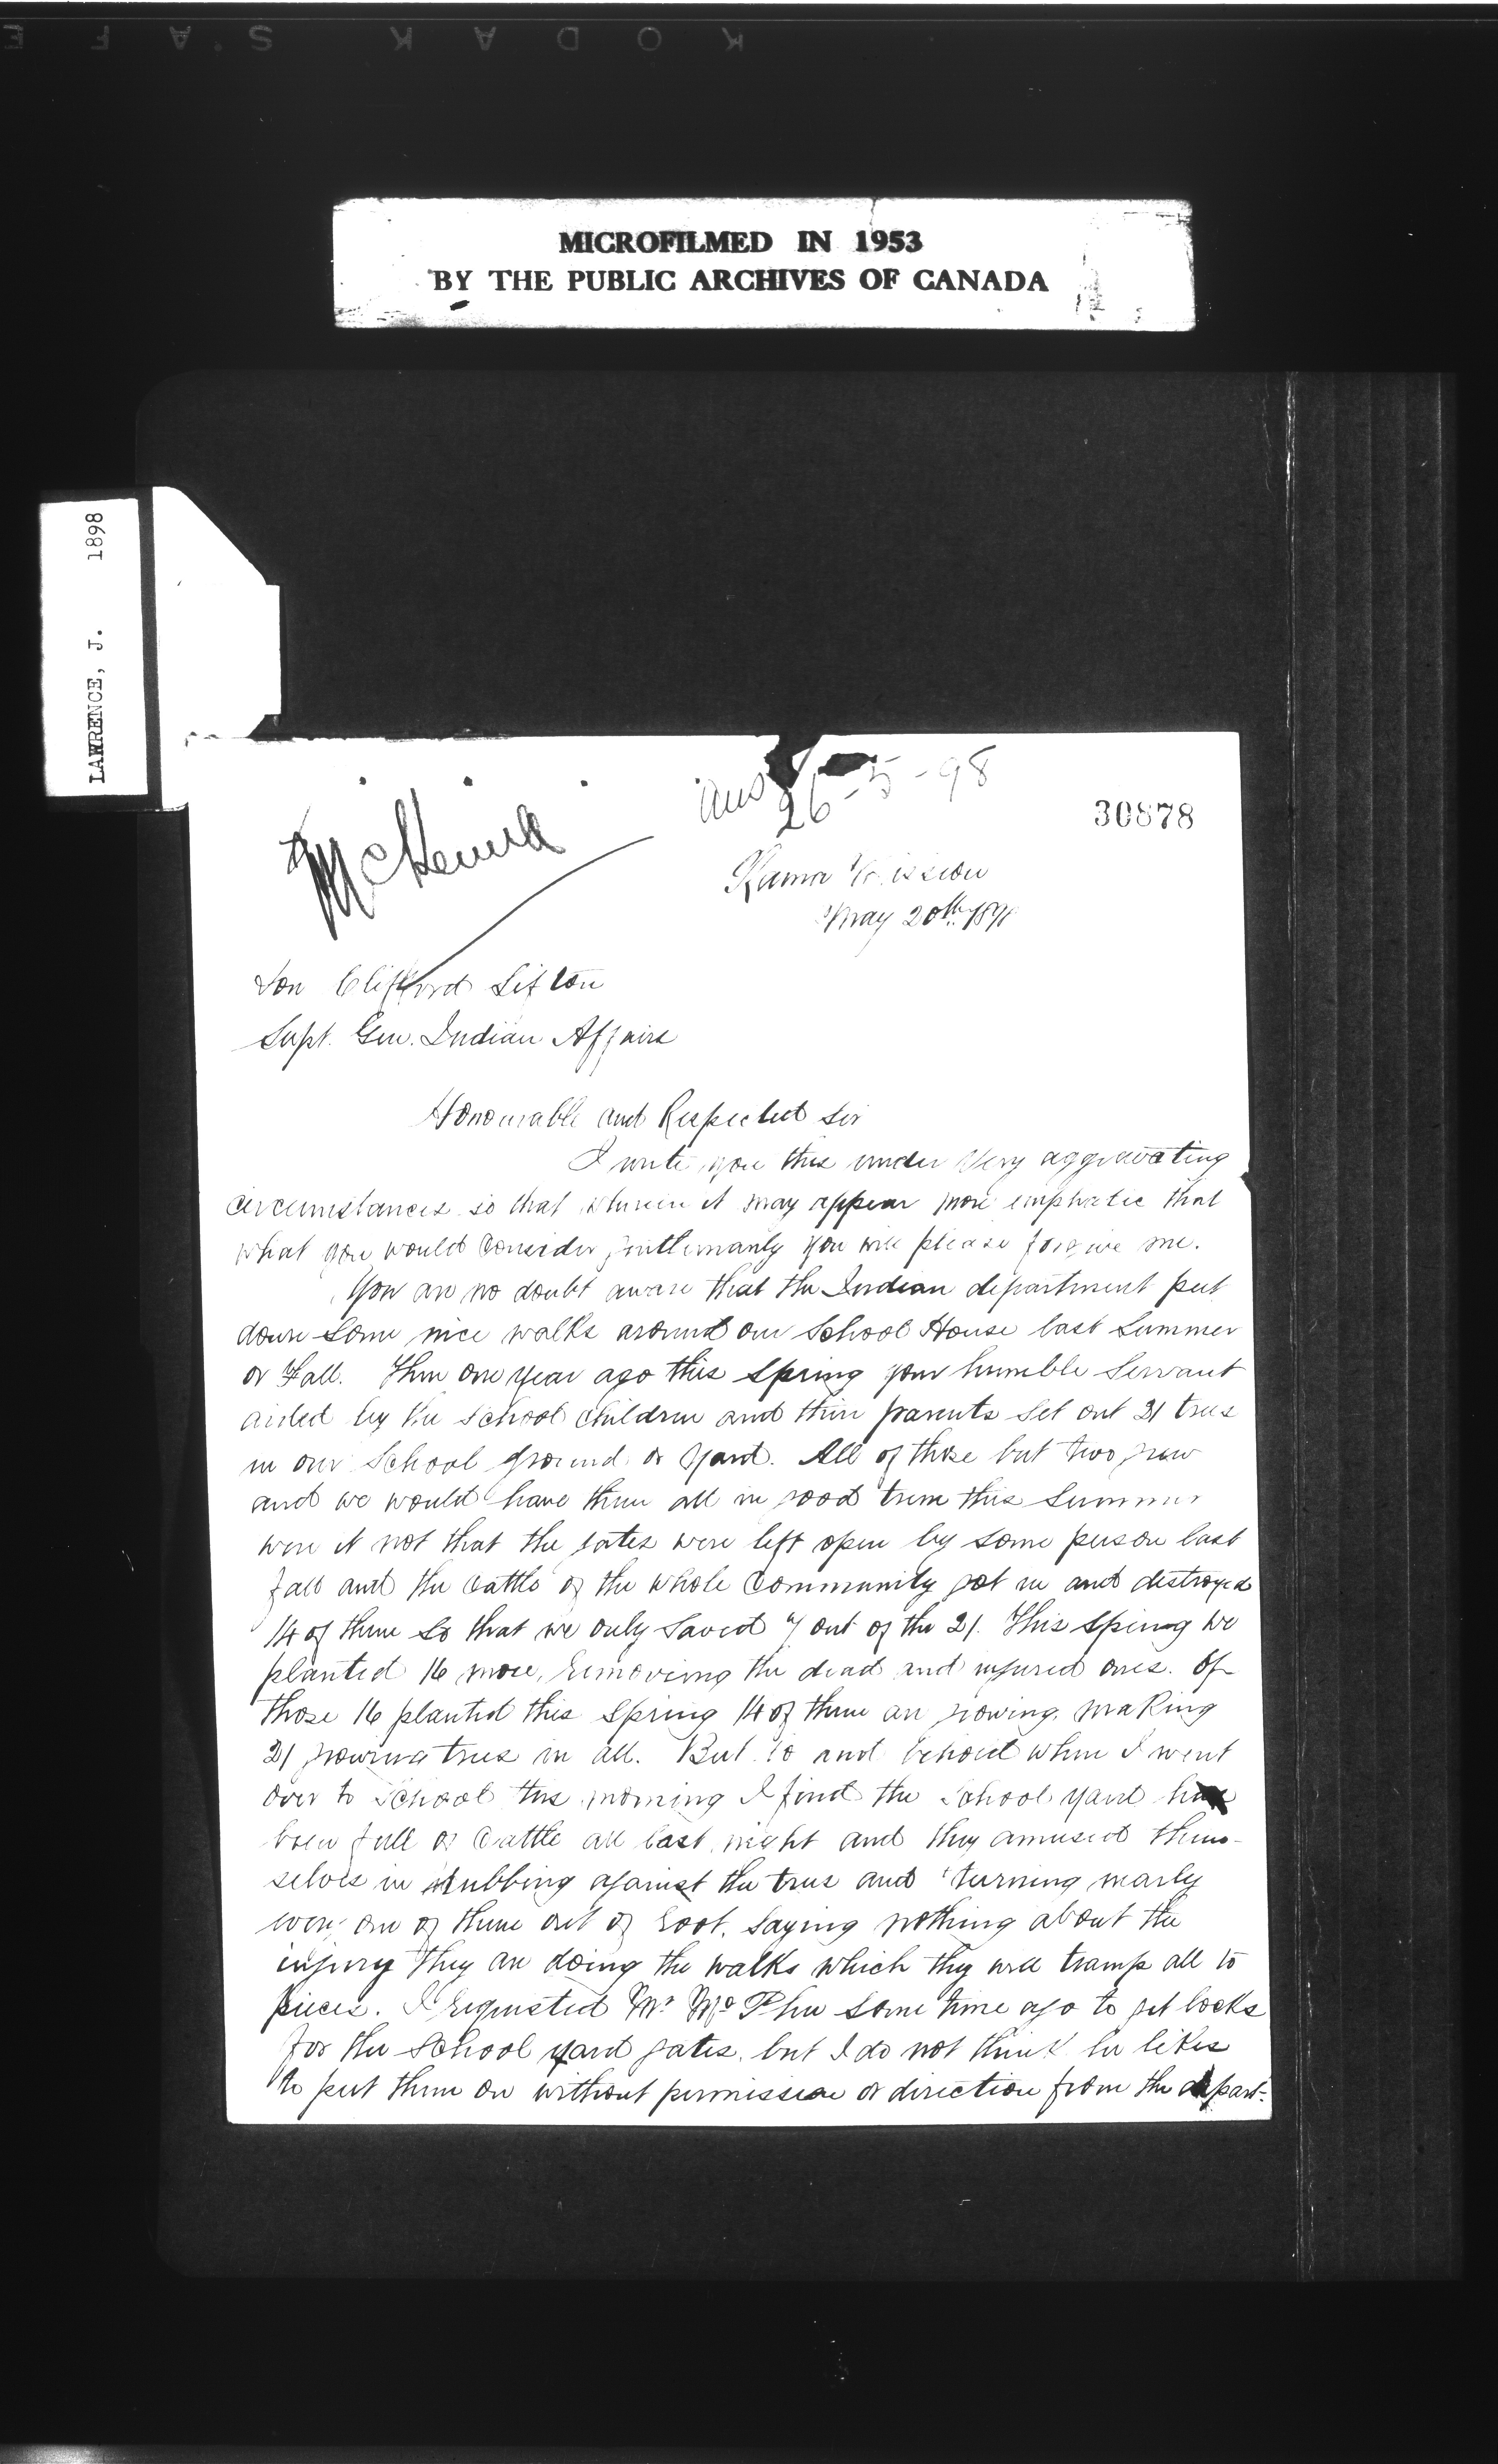 KODAK SAFE
MICROFILMED IN 1953
BY THE PUBLIC ARCHIVES OF CANADA
LAWRENCE, J. 1898
McKenna
ans 26-5-98
30878
Rama Mission
May 20th 1898
Hon Clifford Sifton
Supt. Gen. Indian Affairs
Honourable and Respected Sir
I write you this under Very aggrivating
circumstances so that wherein it may appear more emphatic that
what you would consider gentlemanly you will please forgive me.
You are no doubt aware that the Indian department put
down some nice walks around our School House last Summer
or Fall. Then one year ago this Spring your humble Servant
aided by the School children and their parents set out 21 trees
in our School ground or yard. All of those but two grew
and we would have them all in good trim this Summer
were it not that the gates were left open by some person last
fall and the cattle of the whole community got in and destroyed
14 of them so that we only saved 7 out of the 21. This Spring we
planted 16 more, removing the dead and injured ones. Of
those 16 planted this Spring 14 of them are growing, making
21 growing trees in all. But lo and behold when I went
over to School this morning I find the School yard has
been full of cattle all last night and they amused them-
selves in rubbing against the trees and turning nearly
every one of them out of root. Saying nothing about the
injury they are doing the walks which they will tramp all to
pieces. I requested Mr McPhee some time ago to get locks
for the School yard gates, but I do not think he likes
to put them on without permission or direction from the depart-